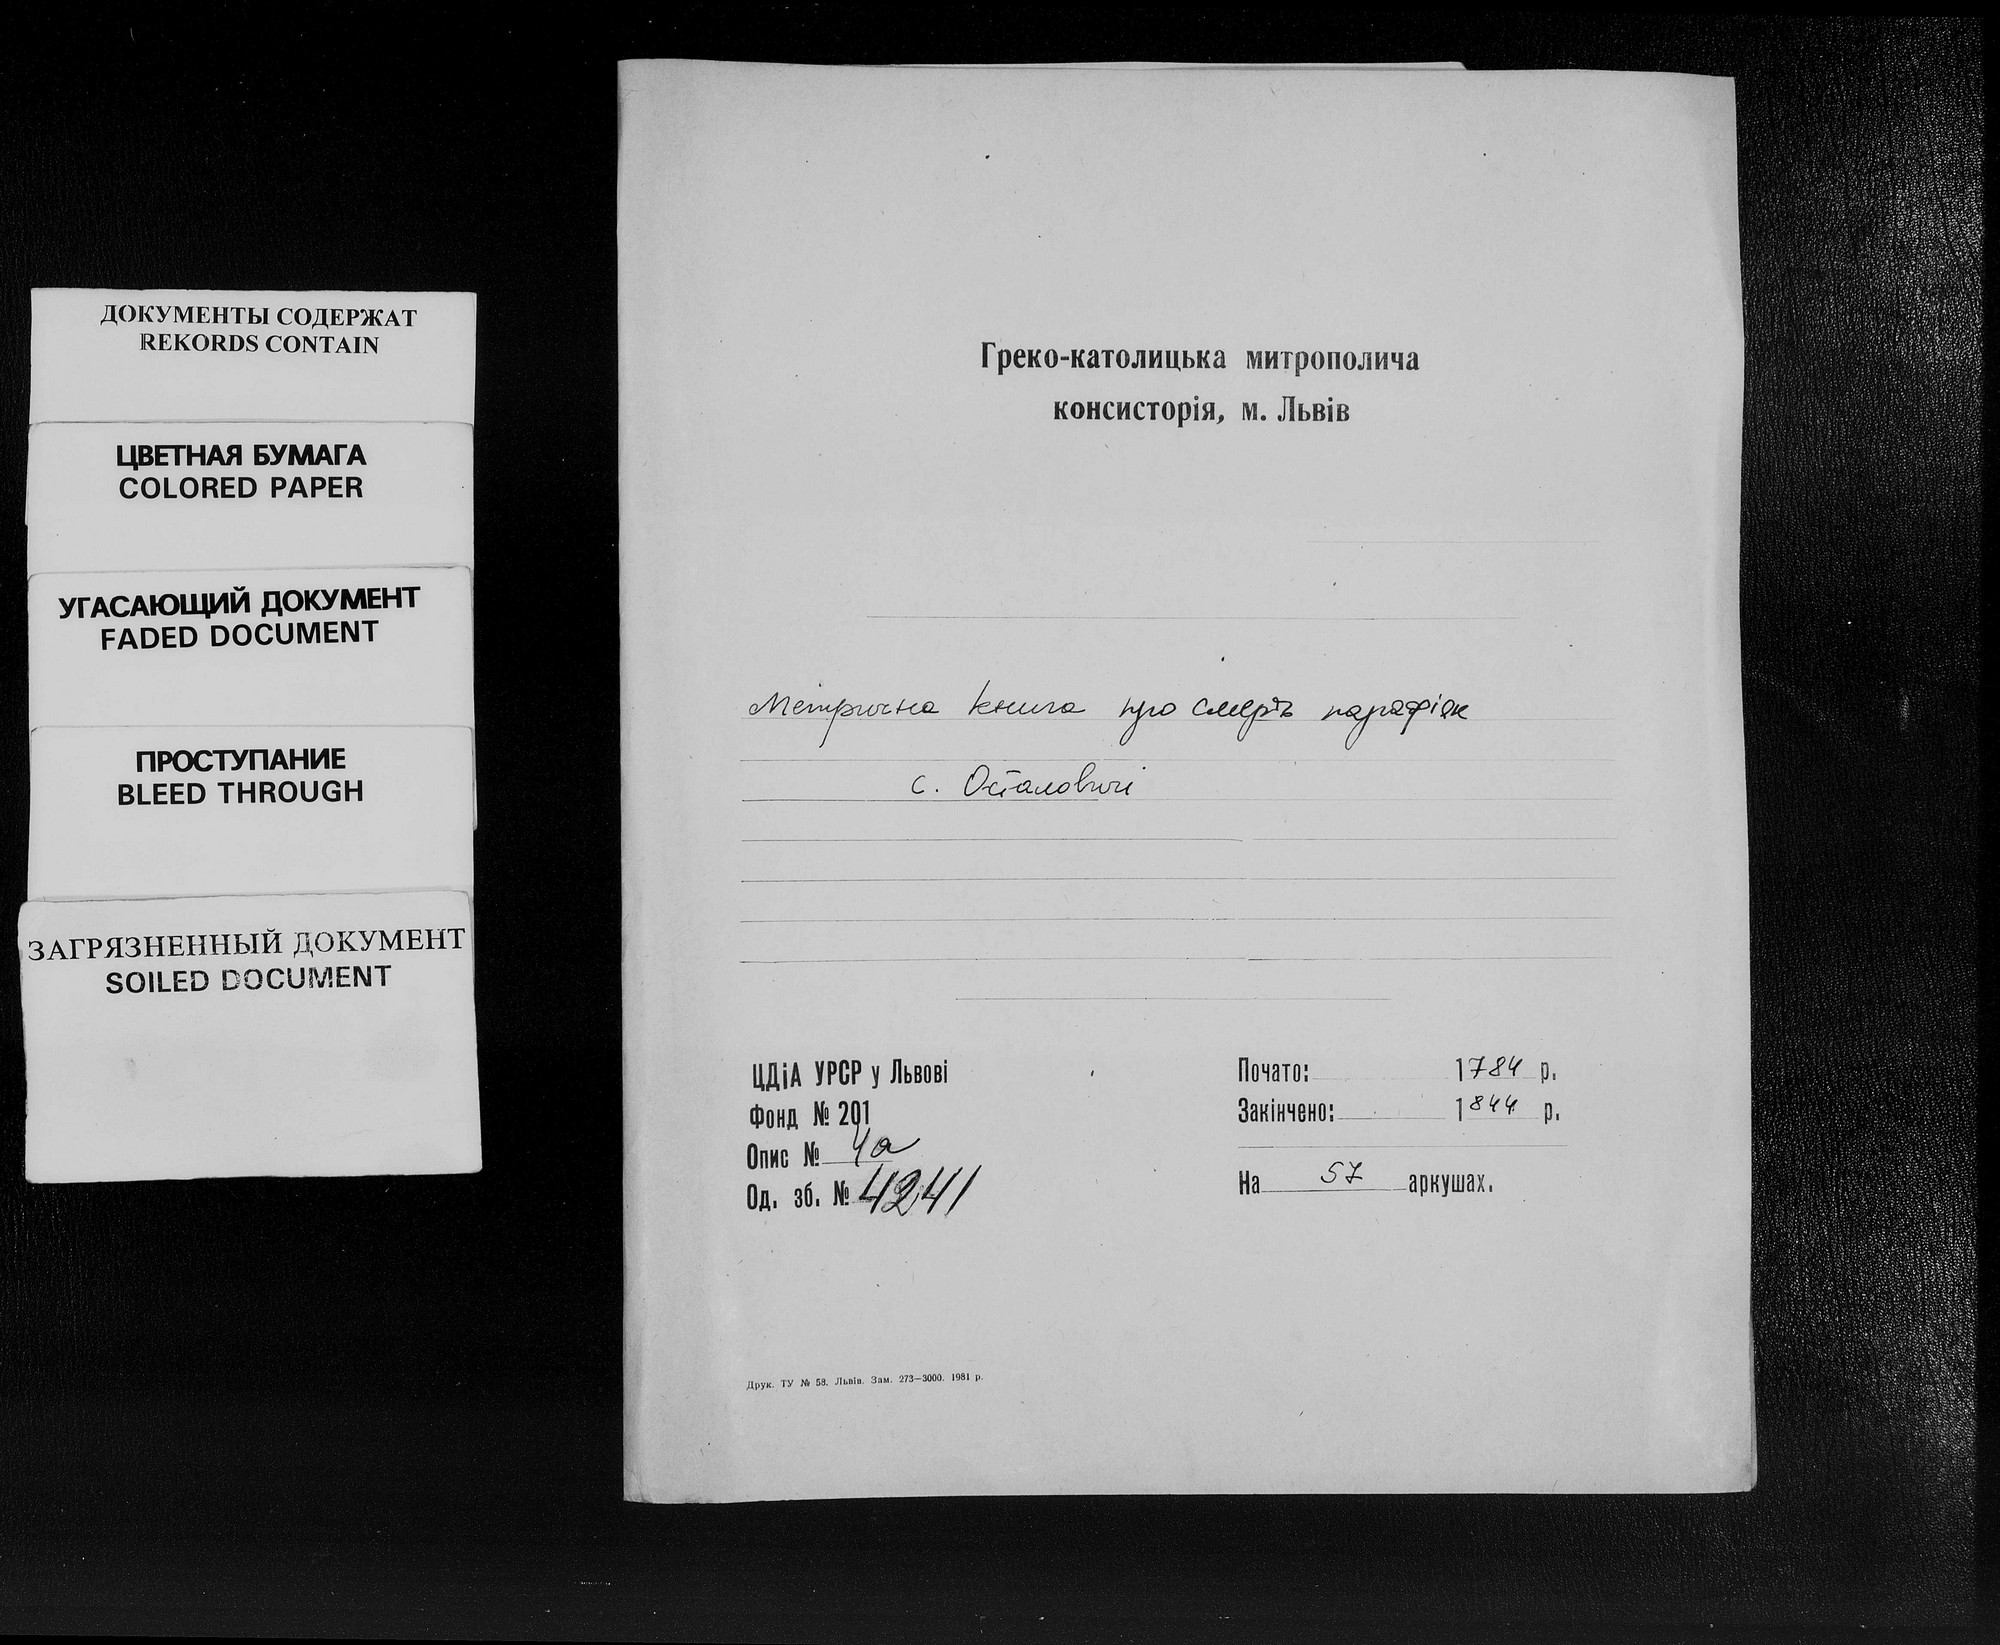 ДОКУМЕНТЫ СОДЕРЖАТ
REKORDS CONTAIN
ЦВЕТНАЯ БУМАГА
COLORED PAPER
УГАСАЮЩИЙ ДОКУМЕНТ
FADED DOCUMENT
ПРОСТУПАНИЕ
BLEED THROUGH
ЗАГРЯЗНЕННЫЙ ДОКУМЕНТ
SOILED DOCUMENT
Греко-католицька митрополича
консисторія, м. Львів
Метрична книга про смерть парафіян
с. Осталовичі
ЦДіА УРСР у Львові
Фонд № 201
Опис № 4а
Од. зб. № 4241
Почато: 1784 р.
Закінчено: 1844 р.
На 57 аркушах.
Друк. ТУ № 58. Львів. Зам. 273—3000. 1981 р.